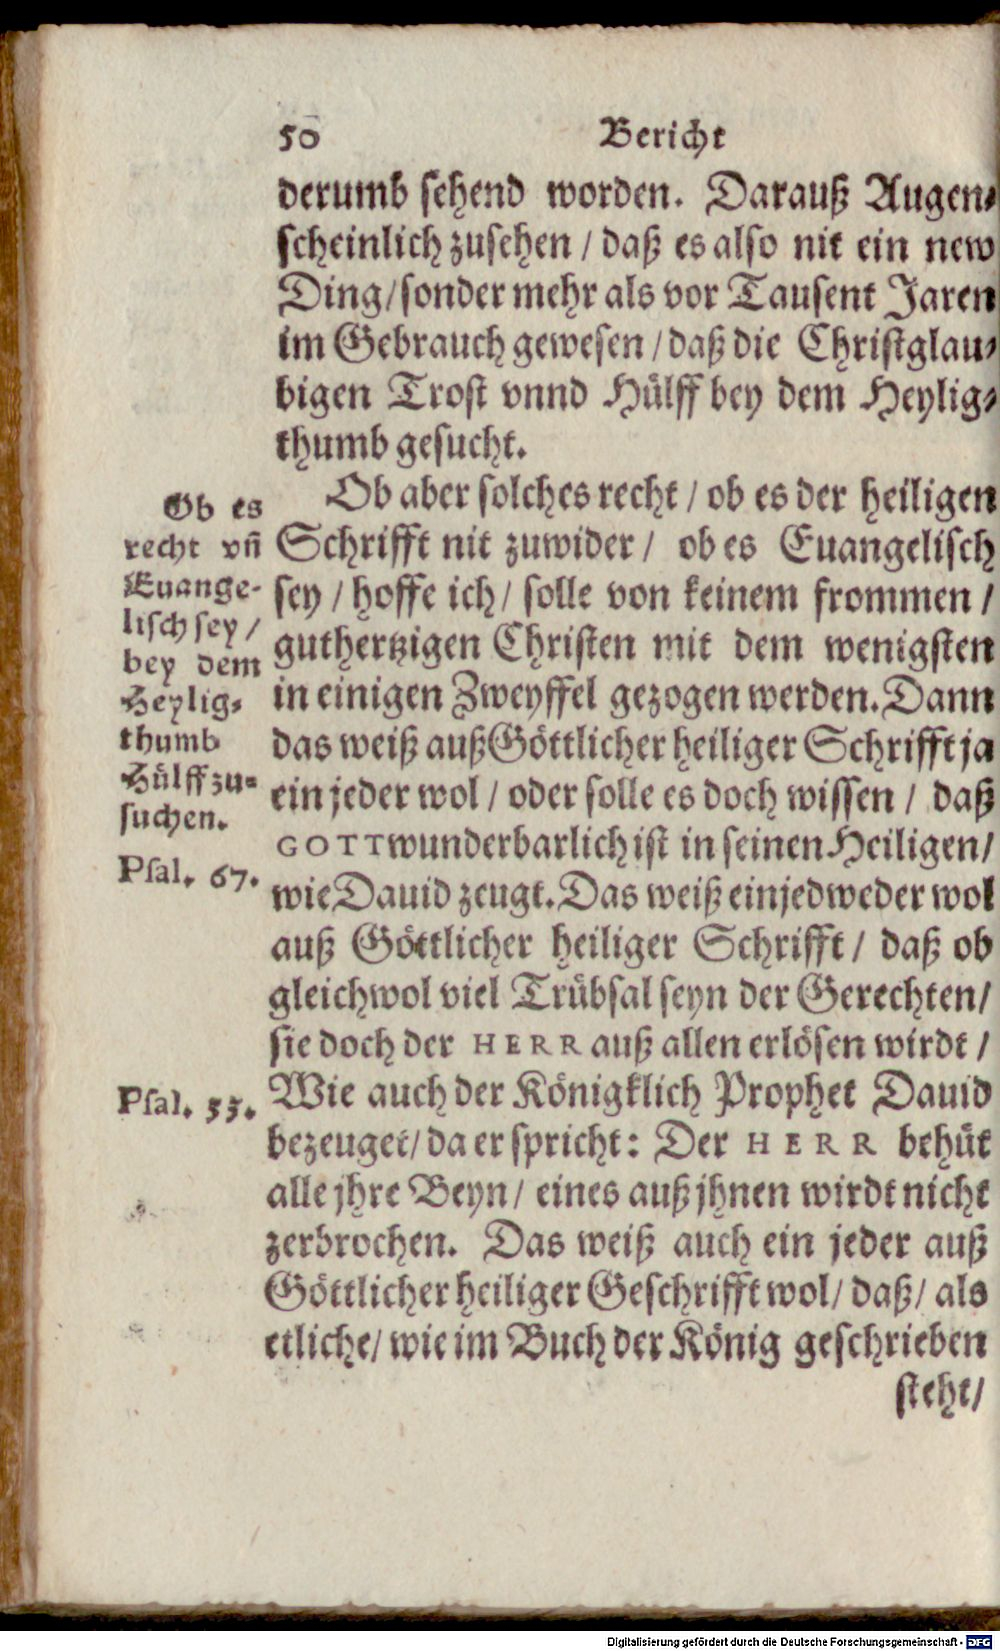 50 Bericht
derumb sehend worden. Darauß Augen-
scheinlich zusehen / daß es also nit ein new
Ding / sonder mehr als vor Tausent Jaren
im Gebrauch gewesen / daß die Christglau-
bigen Trost vnnd Hülff bey dem Heylig-
thumb gesucht.
Ob aber solches recht / ob es der heiligen
Schrifft nit zuwider / ob es Euangelisch
sey / hoffe ich / solle von keinem frommen /
guthertzigen Christen mit dem wenigsten
in einigen Zweyffel gezogen werden. Dann
das weiß auß Göttlicher heiliger Schrifft ja
ein jeder wol / oder solle es doch wissen / daß
GOTT wunderbarlich ist in seinen Heiligen /
wie Dauid zeugt. Das weiß einjedweder wol
auß Göttlicher heiliger Schrifft / daß ob
gleichwol viel Trübsal seyn der Gerechten /
sie doch der HERR auß allen erlösen wirdt /
Wie auch der Königklich Prophet Dauid
bezeuget / da er spricht: Der HERR behüt
alle jhre Beyn / eines auß jhnen wirdt nicht
zerbrochen. Das weiß auch ein jeder auß
Göttlicher heiliger Geschrifft wol / daß / als
etliche / wie im Buch der König geschrieben
steht /
Ob es
recht vñ
Euange-
lisch sey /
bey dem
Heylig-
thumb
Hülff zu-
suchen.
Psal. 67.
Psal. 33.
Digitalisierung gefördert durch die Deutsche Forschungsgemeinschaft - DFG